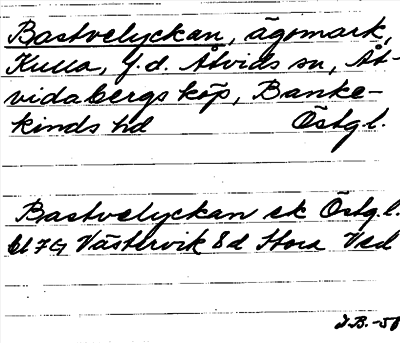 Bastvelyckan, ägomark,
Kulla, Y.d. Åtvids sn, Åt-
vidabergs köp, Banke-
kinds hd Östgl.
Bastvelyckan ek Östg.l.
bl 7G Västervik 8d Stora Ved
J.B.-58